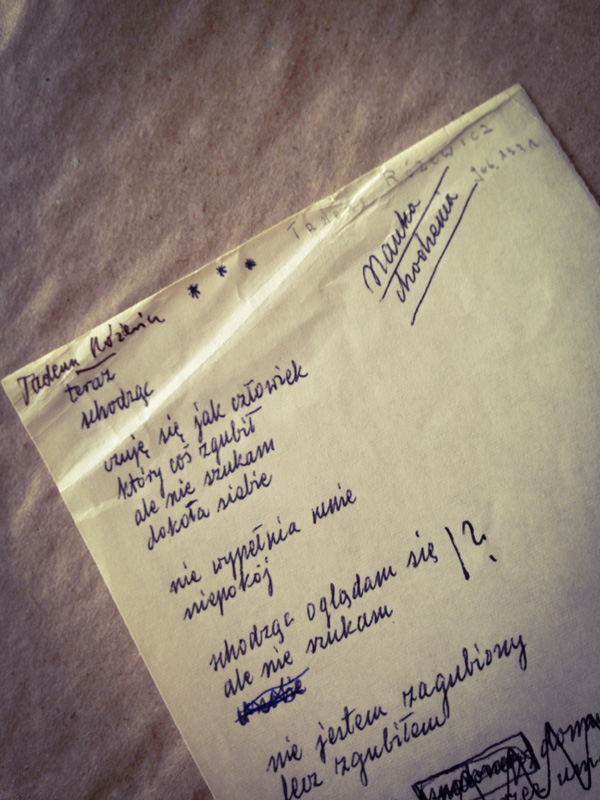 TADEUSZ RÓŻEWICZ
Nauka
chodzenia
* * *
Tadeusz Różewicz
teraz
schodząc
czuję się jak człowiek
który coś zgubił
ale nie szukam
dokoła siebie
nie wypełnia mnie
niepokój
schodząc oglądam się
ale nie szukam
!?
nie jestem zagubiony
lecz zgubiłem